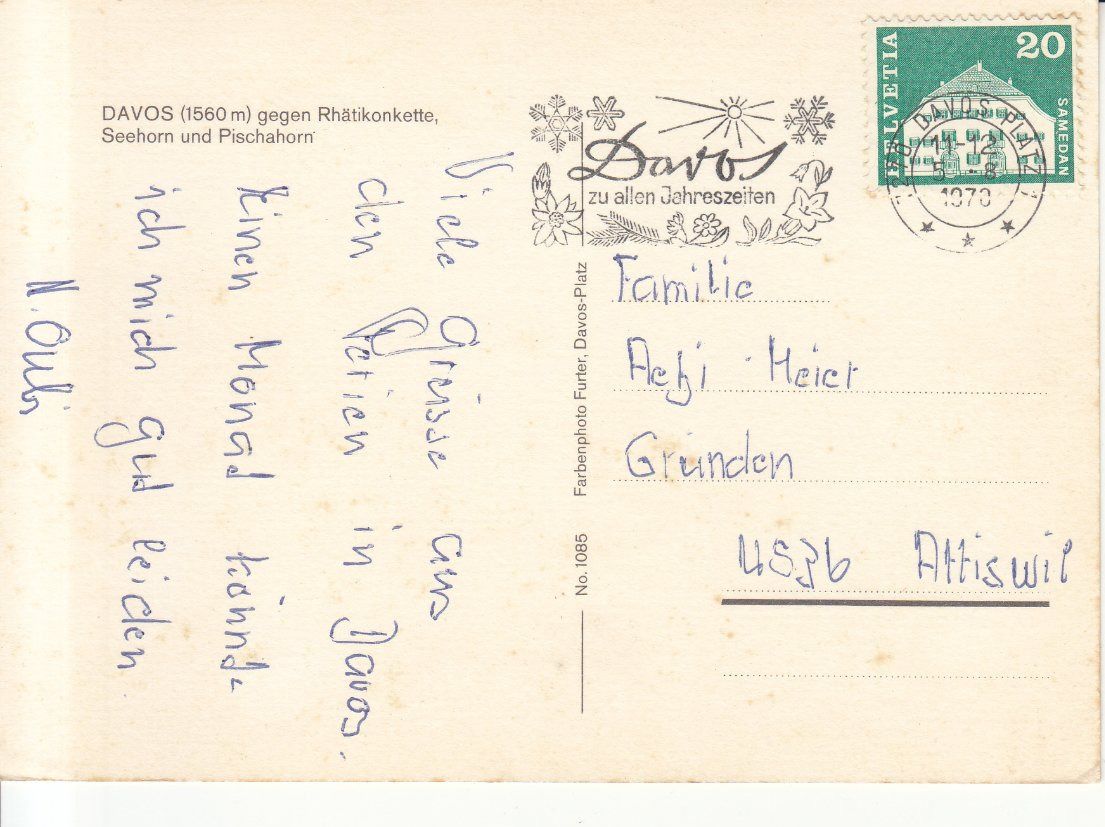 DAVOS (1560 m) gegen Rhätikonkette,
Seehorn und Pischahorn
Viele Grüsse aus
den Ferien in Davos.
Einen Monad könnte
ich mich gud leiden.
Davos
zu allen Jahreszeiten
HELVETIA
20
SAMEDAN
7270 DAVOS PLATZ 1
11-12
5.-8
1970
Farbenphoto Furter, Davos-Platz
No. 1085
Familie
Meier
Gründen
4536 Attiswil